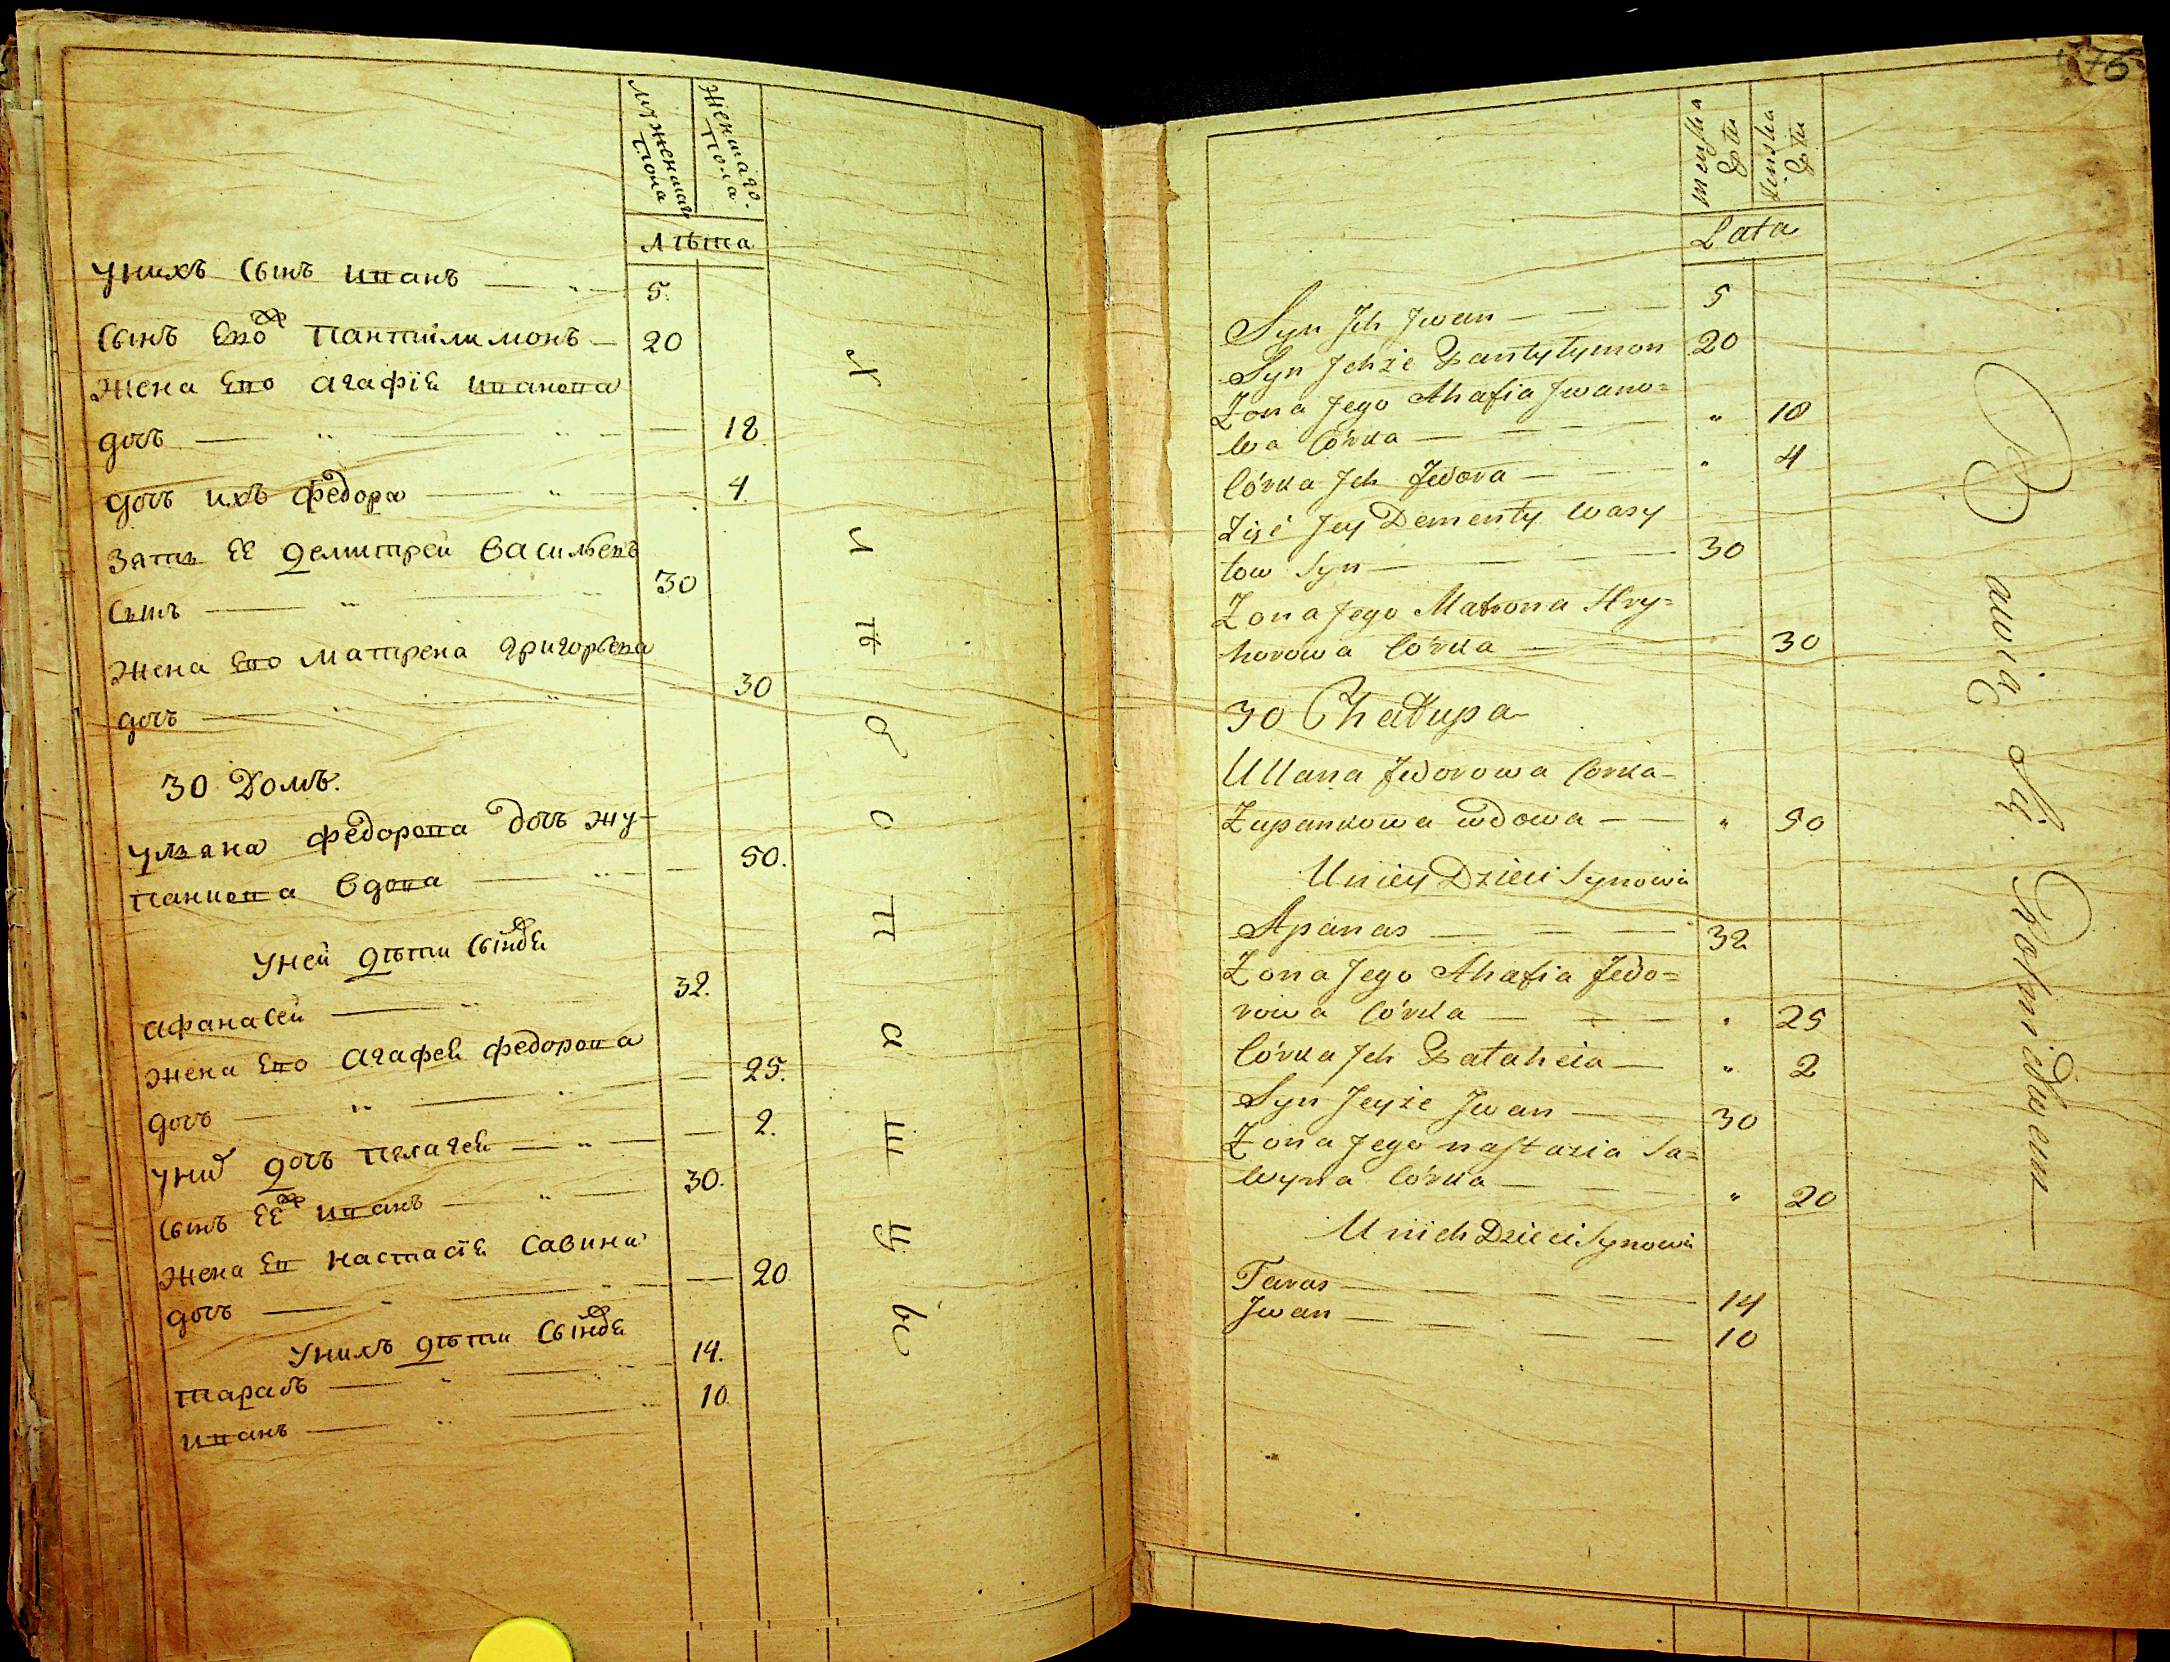 Муженшаго Пола
Женшаго. Пола
Лѣта
Унихъ Сынъ Иванъ — 5.
Сынъ Егожъ Пантилимонъ — 20
Жена Его Агафіе Иванова
дочъ — 18.
дочъ ихъ Федора — 4.
Зять ЕЕ Демитрей Васильевъ
Сынъ — 30
Жена Его Матрена Григорьева
дочъ — 30
30 Домъ.
Ульяна Федорова дочъ Жу-
панкова Вдова — 50.
Уней дѣти Сынове
Афанасей — 32.
Жена Его Агафеи Федорова
дочъ — 25.
дочъ Пелагеи — 2.
Сынъ ЕЕжъ Иванъ — 30.
Жена Ег Настасіе Савина
дочъ — 20
Унихъ дѣти Сынове
Тарасъ — 14.
Иванъ — 10.
76
Menska Płtu
Zinska Płtu
Lata
Syn Jch Jwan — 5
Syn Jchże Pantyłymon 20
Zona Jego Ahafia Jwano=
wa Córka — " 18
Córka Jch Fedora — " 4
Zięć Jey Dementy Wasy
low Syn — 30
Zona Jego Matrona Hry=
horowa Córka — 30
30 Chałupa
Ullana Fedorowa Corka
Zupankowa wdowa — " 50
U niey Dzieci Synowi
Apanas — 32
Zona Jego Ahafia Fedo=
rowa Córka — " 25
Córka Jch Pałaheia — " 2
Syn Jeyże Jwan — 30
Zona Jego nastazia Sa=
wyna Córka — " 20
U nich Dzieci Synowi
Taras — 14
Jwan — 10